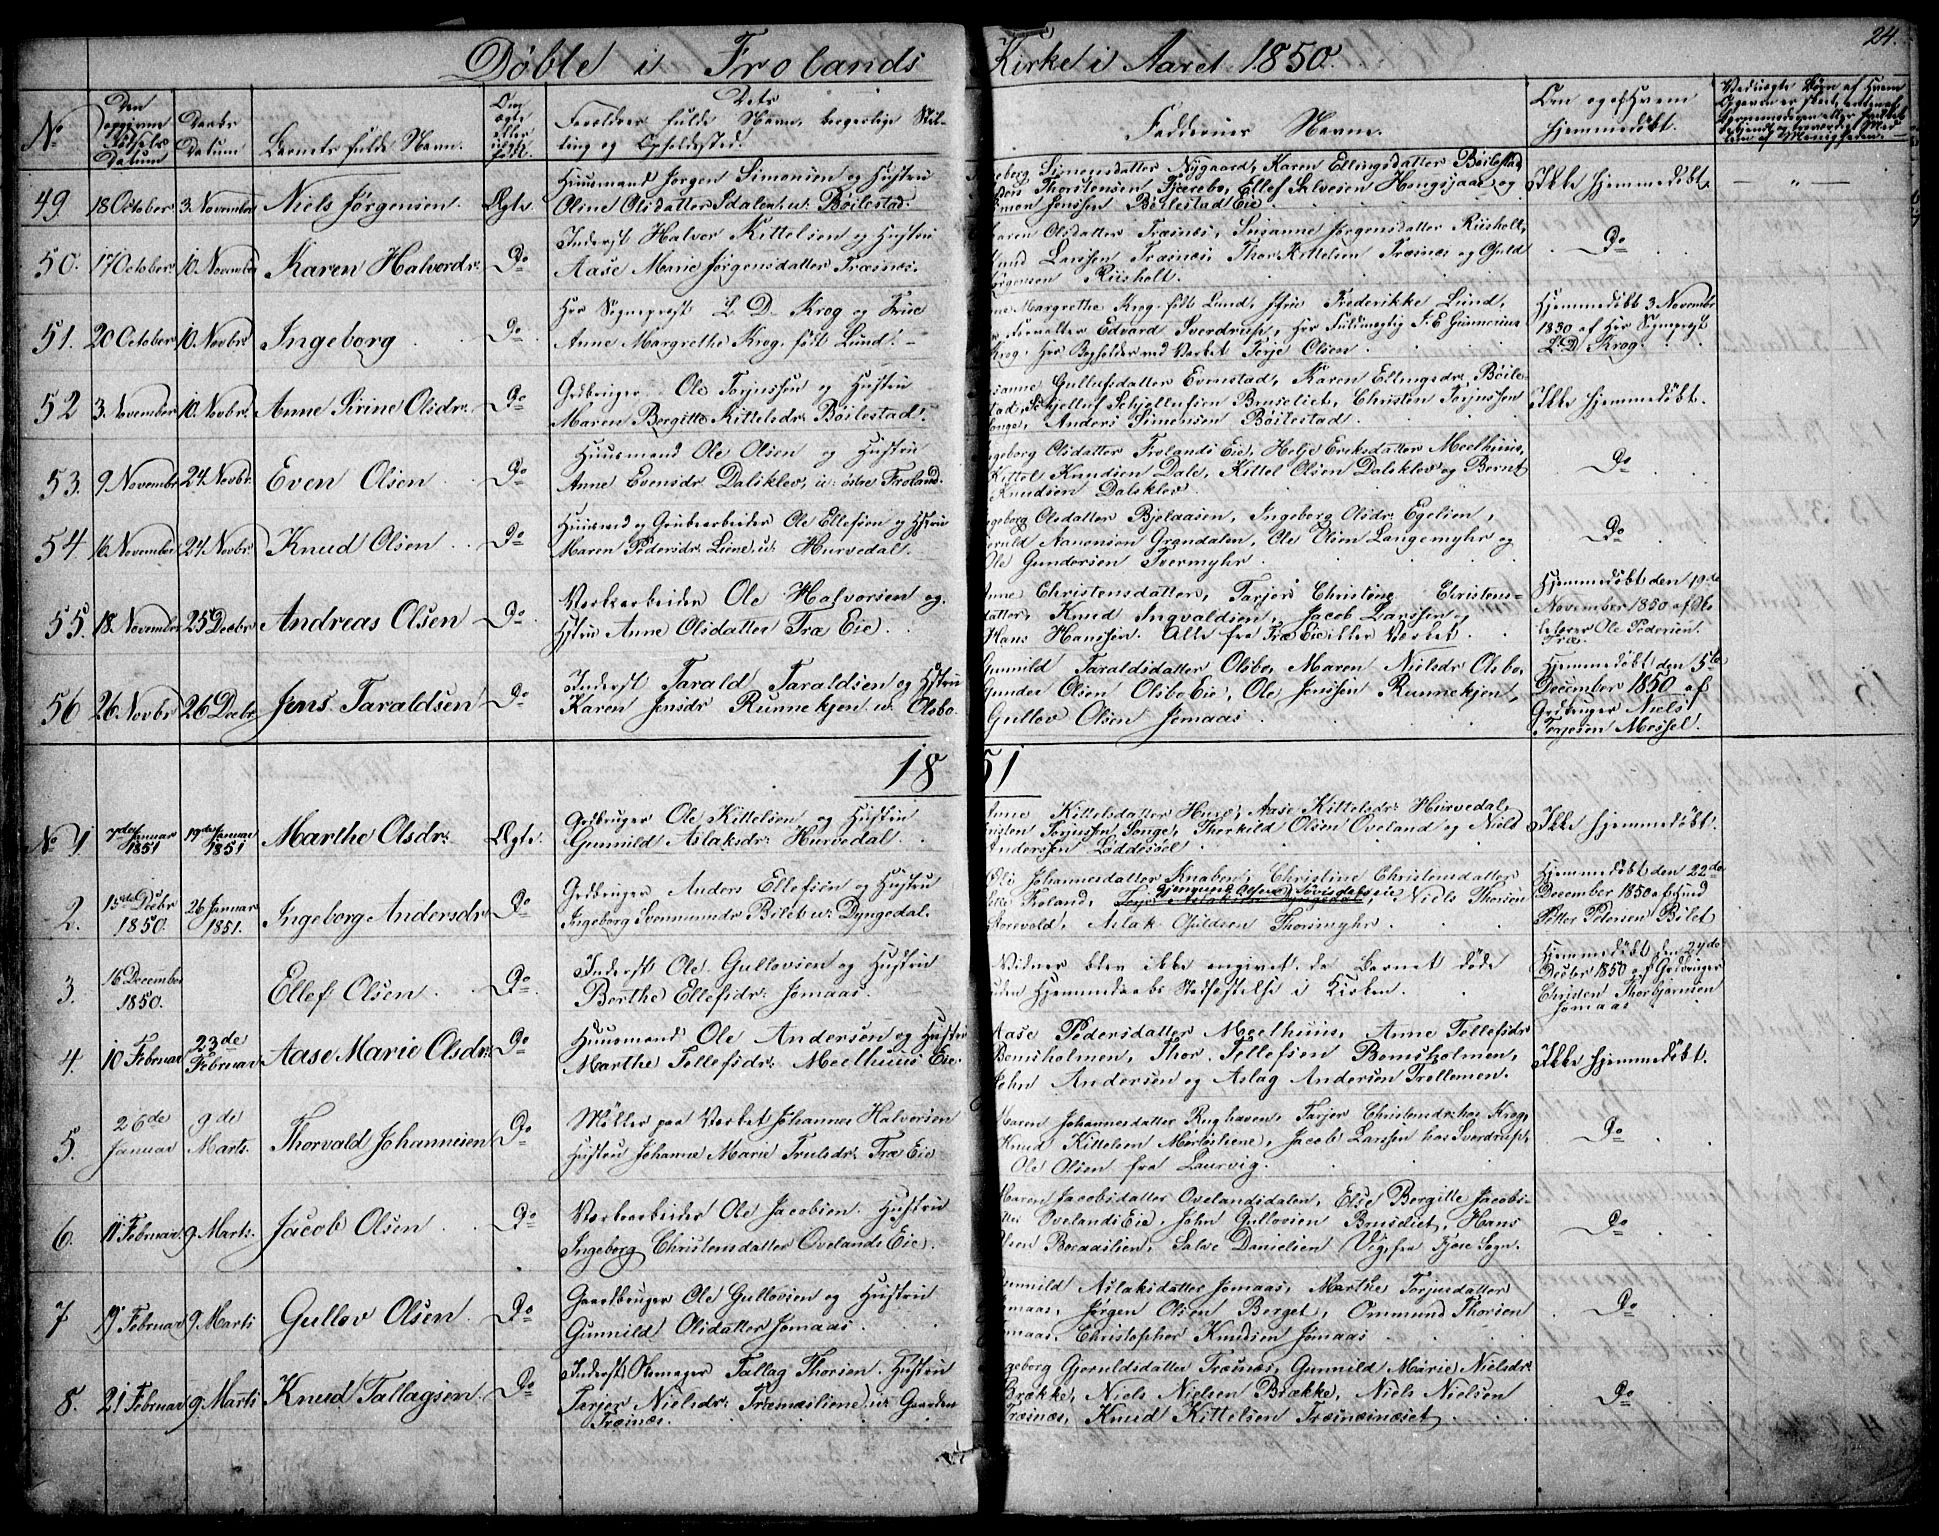 24.
Døbte i Frolands Kirke i Aaret 1850.
No
Den
opgivne
Fødsels
Datum
Daabs
Datum
Barnets fulde Navn.
Om
ægte
eller
uægte
født.
Dets
Forældres fulde Navn, borgerlige Stil-
ling og Opholdssted.
Faddernes Navne.
Om og af Hvem
hjemmedøbt.
49 18 October 3. November Niels Jørgensen. Ægte.
Huusmand Jørgen Simonsen og Hustru
Oline Olsdatter Sdalen u. Bøilestad.
Simensdatter Nygaard, Karen Ellingsdatter Bøilestad,
Thorstensen Fjærebo, Ellef Salvesen Hengsjaae og
Simon Jenssen Bøilestad Eie
Ikke hjemmedøbt.
50. 17 October 10. November Karen Halvordr. Do
Inderst Halvor Kittelsen og Hustru
Aase Marie Jørgensdatter Træsnæs.
Karen Olsdatter Træsnæs, Susanne Jørgensdatter Riisholt,
Knud Larssen Træsnæs Thor Kittelsen Træsnæs og Guld
Jørgensen Riisholt.
Do
51. 20 October 10. Novbr Ingeborg Do
Hr Sognepræst L. D. Krog og Frue
Anne Margrethe Krog født Lund.
Margrethe Krog født Lund, Frederikke Lund,
Forvalter Edvard Sverdrup, Hr Fuldmægtig J. E. Gunnerius
Krog, Hr Bogholder ved Værket Terje Olsen
Hjemmedøbt 3 Novembr
1850 af Hr Sognepræst
L. D. Krog.
52 3. November 10. Novbr. Anne Sirine Olsdr. Do
Grdbruger Ole Torjussen og Hustru
Maren Bergitte Kittelsdr. Bøilestad.
Gullufsdatter Evenstad, Karen Ellingsdr. Bøile-
stad, Schjelluf Schjellufsen Bruseliet, Christen Torjussen
Songe, Anders Simensen Bøilestad
Ikke hjemmedøbt.
53. 9 November 24 Novbr. Even Olsen Do
Huusmand Ole Olsen og Hustru
Anne Evensdr Dalsklev, u: østre Froland.
Ingeborg Olsdatter Frolands Eie, Helje Eriksdatter Meelhuus,
Kittel Knudsen Dale, Kittel Olsen Dalsklev og Bernt
Knudsen Dalsklev
Do
54. 16. November 24 Novbr Knud Olsen Do
Huusmd og Grubearbeider Ole Ellefsen og Hstru
Maren Pedersdr. Liene u. Hurvedal.
Ingeborg Olsdatter Bjelaasen, Ingeborg Olsdr. Egelien,
Aanonsen Grøndalen, Ole Olsen Langemyhr og
Ole Gundersen Tvermyhr
Do
55. 18. November 25 Decbr Andreas Olsen Do
Værkarbeider Ole Halvorsen og
Hstru Anne Olsdatter Træ Eie.
Anne Christensdatter, Tarjer Christine Christens-
datter, Knud Ingvaldsen, Jacob Larssen og
Hans Hanssen. Alle fra Træ Eie eller Værket.
Hjemmedøbt den 19de
November 1850 af Sko
lelærer Ole Pedersen
Træ.
56 26 Novbr 26 Decbr Jens Taraldsen Do
Inderst Tarald Taraldsen og Hstru
Karen Jensdr Runnekjen u. Olsbo.
Gunnild Taraldsdatter Olsbo, Maren Nielsdr Olsbo,
Gunder Olsen Olsbo Eie, Ole Jenssen Runnekjen,
Gullov Olsen Jomaas
Hjemmedøbt den 5te
December 1850 af
Grdbruger Niels
Terjesen Messel.
1851
No 1 7de Januar 1851 19de Januar 1851 Marthe Olsdr. Ægte.
Grdbruger Ole Kittelsen og Hustru
Gunnild Aslaksdr. Hurvedal.
Anne Kittelsdatter Huse, Aase Kittelsdr. Hurvedal,
Christen Torjussen Songe, Thorkild Olsen Oveland og Niels
Anderssen Løddesøel
Ikke hjemmedøbt.
2. 15de Decbr 1850. 26 Januar 1851. Ingeborg Andersdr Do
Grdbruger Anders Ellefsen og Hustru
Ingeborg Svenmundsdr Bøleb u. Dyngedal.
Johannesdatter Knaben, Christine Christensdatter
Froland, Niels Thorsen
Aslak Guldsen Thorsmyhr
Hjemmedøbt den 22de
December 1850 af
Petter Petersen Bølet
3. 16 December 1850. Ellef Olsen Do
Inderst Ole Gullovsen og Hustru
Berthe Ellefsdr. Jomaas.
Vidner blev ikke angivet da Barnet døde
uden Hjemmedaabs Stadfæstelse i Kirken.
Hjemmedøbt den 24de
Decbr 1850 af Grdbruger
Christen Thorbjørnsen
Jomaas
4. 10 Februar 23de Februar Aase Marie Olsdr. Do
Huusmand Ole Andersen og Hustru
Marthe Tellefsdr. Meelhuus Eie
Aase Pedersdatter Meelhuus, Anne Tellefsdr
Bomsholmen, Thor Tellefsen Bomsholmen,
John Andersen og Aslag Andersen Trollemen.
Ikke hjemmedøbt.
5. 26de Januar 9de Marts. Thorvald Johannesen Do
Møller paa Værket Johannes Halvorsen
Hustru Johanne Marie Trulsdr. Træ Eie
Maren Johannesdatter Rughaven, Tarjer Christensdr. hos Krog,
Knud Kittelsen Mørløsliene, Jacob Larssen hos Sverdrup,
Ole Olsen fra Laurvig.
Do
6. 11 Februar 9. Marts. Jacob Olsen Do
Værkarbeider Ole Jacobsen. Hustru
Ingeborg Christensdatter Ovelands Eie.
Maren Jacobsdatter Ovelandsdalen, Else Bergitte Jacobs-
datter Ovelands Eie, John Gullovsen Bruseliet, Hans
Olsen Boraaslien, Salve Danielsen Vige fra Fjære Sogn.
Do
7 19 Februar 9. Marts Gullov Olsen. Do
Gaardbruger Ole Gullovsen og Hustru
Gunnild Olsdatter Jomaas.
Gunnild Aslaksdatter Jomaas, Marthe Torjusdatter
Jomaas, Jørgen Olsen Berget, Ommund Thorsen
Jomaas, Christopher Knudsen Jomaas
Do
8. 21 Februar 9. Marts Knud Tallagsen Do
Inderst Skomager Tallag Thorsen. Hustru
Terjer Nielsdr. Træmæsliene u. Gaarden
Træsnæs.
Ingeborg Gjeruldsdatter Træsnæs, Gunnild Marie Nielsdr
Brække, Niels Nielsen Brække, Niels Nielsen
Træsnæs, Knud Kittelsen Træsnæsnæset
Do